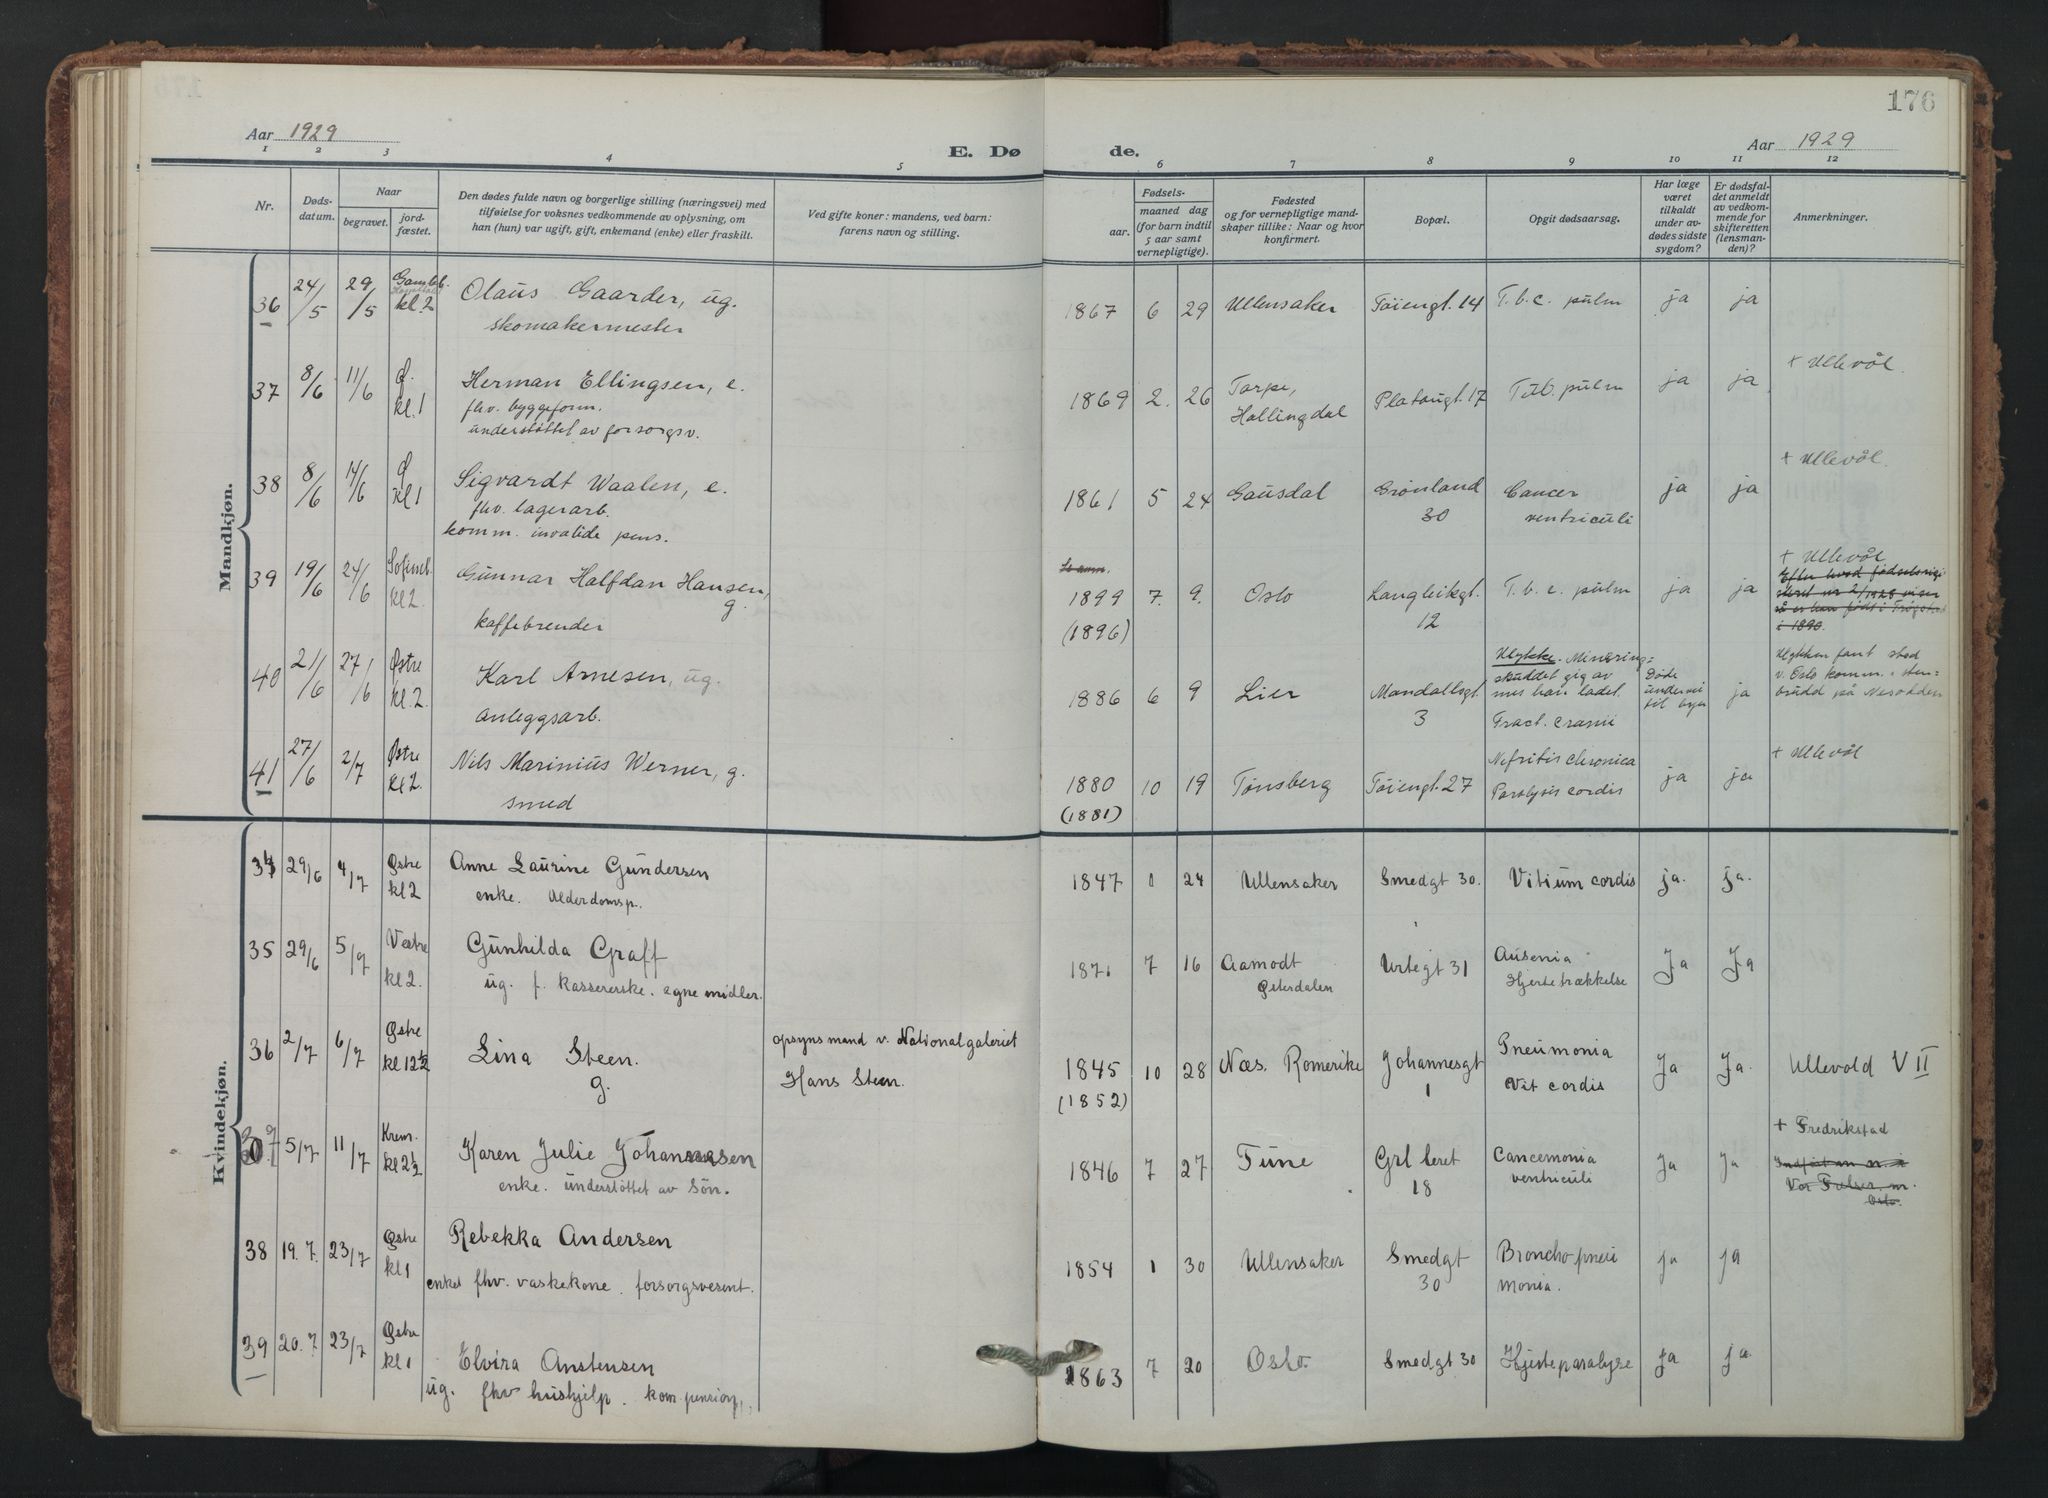 176
Aar 1929
E. Dø
de.
Aar 1929
1 2 3 4 5 6 7 8 9 10 11 12
Nr.
Døds-
datum.
Naar
begravet.
jord-
fæstet.
Den dødes fulde navn og borgerlige stilling (næringsvei) med
tilføielse for voksnes vedkommende av oplysning, om
han (hun) var ugift, gift, enkemand (enke) eller fraskilt.
Ved gifte koner: mandens, ved barn:
farens navn og stilling.
Fødsels-
aar.
maaned dag
(for barn indtil
5 aar samt
vernepligtige).
Fødested
og for vernepligtige mand-
skaper tillike: Naar og hvor
konfirmert.
Bopæl.
Opgit dødsaarsag.
Har læge
været
tilkaldt
under av-
dødes sidste
sygdom?
Er dødsfal-
det anmeldt
av vedkom-
mende for
skifteretten
(lensman-
den)?
Anmerkninger.
Mandkjøn.
36 24/5 29/5 Gamleb. kl. 2 Olaus Gaarder, ug. 1867 6 29 Ullensaker Tøiengt. 14 T.b.c. pulm ja ja
skomakermester
37 8/6 11/6 Ø. kl. 1 Herman Ellingsen, e. 1869 2. 26 Torpe, Platougt. 17 Tub. pulm ja ja + Ullevål.
fhv. byggeform. Hallingdal
understøttet av forsorgsv.
38 8/6 14/6 Ø kl 1 Sigvardt Waalen, e. 1861 5 24 Gausdal Grønland Cancer ja ja + Ullevål.
fhv. lagerarb. 30 ventriculi
komm. invalide pens.
39 19/6 24/6 Sofienb. kl 2. Gunnar Halfdan Hansen, g. 1899 7. 9. Oslo Langleikgt. T.b.c. pulm ja ja + Ullevål
kaffebrender (1896) 12
Efter hvad fødselsregi-
steret nr 2/1928 viser
så er han født i Trøgstad
i 1890.
40 21/6 27/6 Østre kl. 2. Karl Arnesen, ug. 1886 6 9 Lier Mandallsgt. ja
Anleggsarb. 3
Ulykke. Minering:
skuddet gik av
mens han ladet.
Fract. cranii
Døde
undervei
til byen
Ulykken fant sted
v. Oslo komm. sten-
brudd på Nesodden
41 27/6 2/7 Østre kl 2. Nils Marinius Werner, g. 1880 10 19 Tønsberg Tøiengt. 27 Nefritis chronica ja ja + Ullevål
smed (1881) Paralysis cordis
Kvindekjøn.
34 29/6 4/7 Østre kl 2 Anne Laurine Gundersen 1847 1 24 Ullensaker Smedgt 30. Vitium cordis ja. ja.
enke. Alderdomsp.
35 29/6 5/7 Vestre kl 2. Gunhilda Graff 1871 7 16 Aamodt Urtegt 31 Ja Ja
ug. f. kassererske. egne midler. Østerdalen Hjertetrækkelse
36 2/7 6/7 Østre kl 12½ Lina Steen. opsynsmand v. Nationalgaleriet 1845 10 28 Næs. Romerike Johannesgt Pneumonia Ja Ja. Ullevold V II
g. Hans Steen. (1852) 1 Vit cordis
37 5/7 11/7 Krem. kl 2½ Karen Julie Johannesen 1846 7 27 Tune Grl beret Ja Ja + Fredrikstad
enke. understøttet av Søn. 18 ventriculi
Oslo.
38 19.7. 23/7 Østre kl 1 Rebekka Andersen 1854 1 30 Ullensaker Smedgt Broncho pneu ja ja
enke fhv. vaskekone. forsorgsvesent. 30 monia.
39 20.7 23/7 Østre kl 1 Elvira Anstensen 1863 7 20 Oslo. Smedgt 30 Hjerteparalyse ja ja
ug. fhv hushjelp. kom. pension.